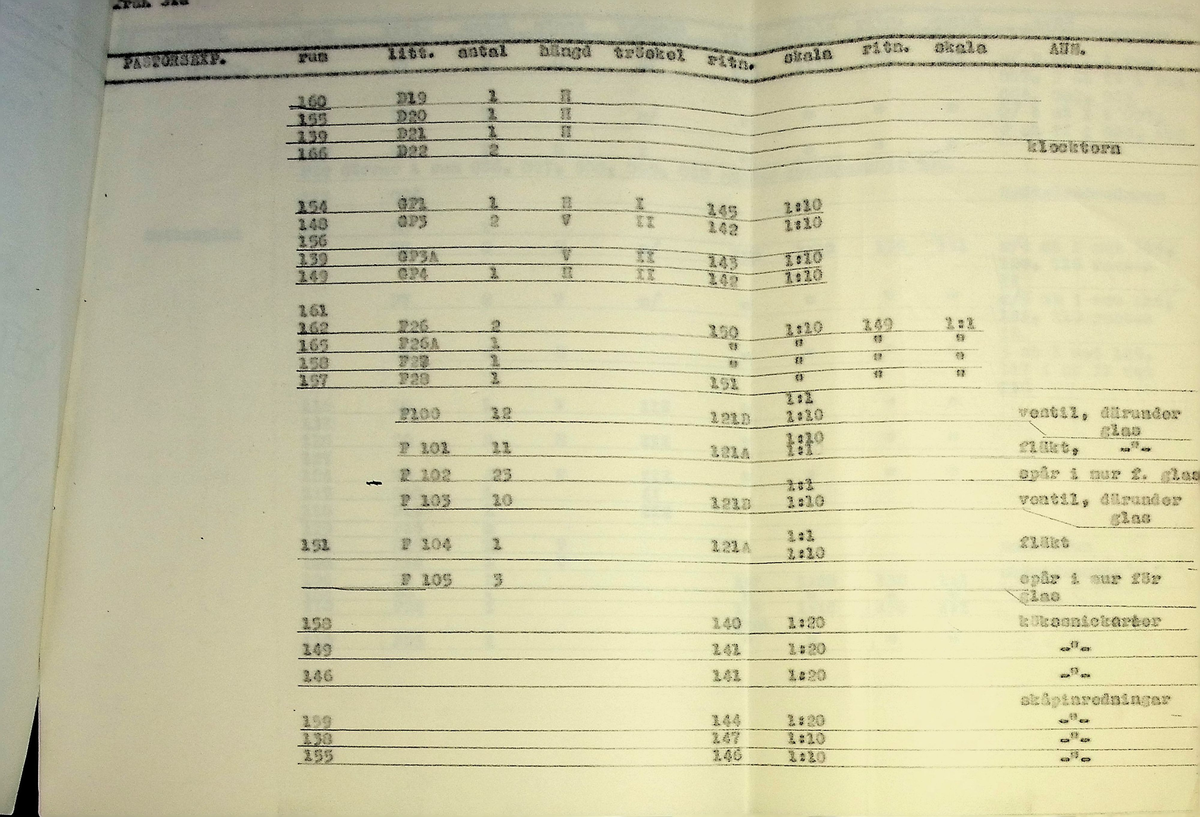 PASTORSEXP. rum litt. antal hängd tröskel ritn. skala ritn. skala ANM.
160 D19 1 H
155 D20 1 H
139 D21 1 H
166 D22 2 klocktorn
154 GP1 1 H I 145 1:10
148 GP3 2 V II 142 1:10
156
139 GP3A V II 143 1:10
149 GP4 1 H II 142 1:10
161
162 F26 2 150 1:10 149 1:1
165 F26A 1 " " " "
158 1 " " " "
157 F28 1 151 " " "
1:1
F100 12 121B 1:10 ventil, därunder
glas
1:10
F 101 11 121A 1:1 fläkt, -"-
F 102 23 spår i mur f. glas
1:1
F 103 10 121B 1:10 ventil, därunder
glas
1:1
151 F 104 1 121A 1:10 fläkt
F 105 3 spår i mur för
glas
158 140 1:20 kökssnickerier
149 141 1:20 -"-
146 141 1:20 -"-
skåpinredningar
159 144 1:20 -"-
138 147 1:10 -"-
155 146 1:10 -"-